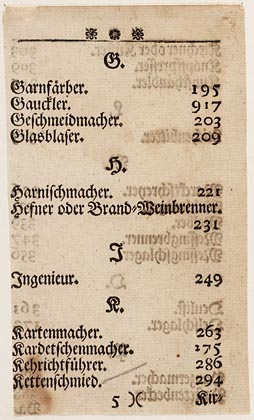 G.
Garnfärber. 195
Gauckler. 917
Geschmeidmacher. 203
Glasblaser. 209
H.
Harnischmacher. 221
Hefner oder Brand-Weinbrenner.
231
I
Ingenieur. 249
K.
Kartenmacher. 263
Kardetschenmacher. 175
Kehrichtführer. 286
Kettenschmied. 294
5 Kir-